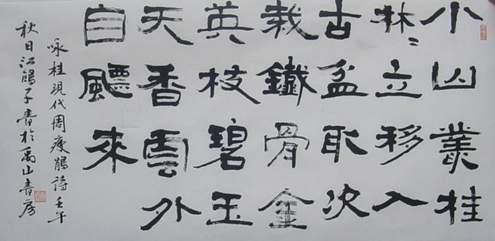 小山叢桂
林〻立移入
古盆取次
栽鐵骨金
英枝碧玉
天香雲外
自飄來
咏桂現代周瘦鵑詩壬午
秋日江子書於禹山書房